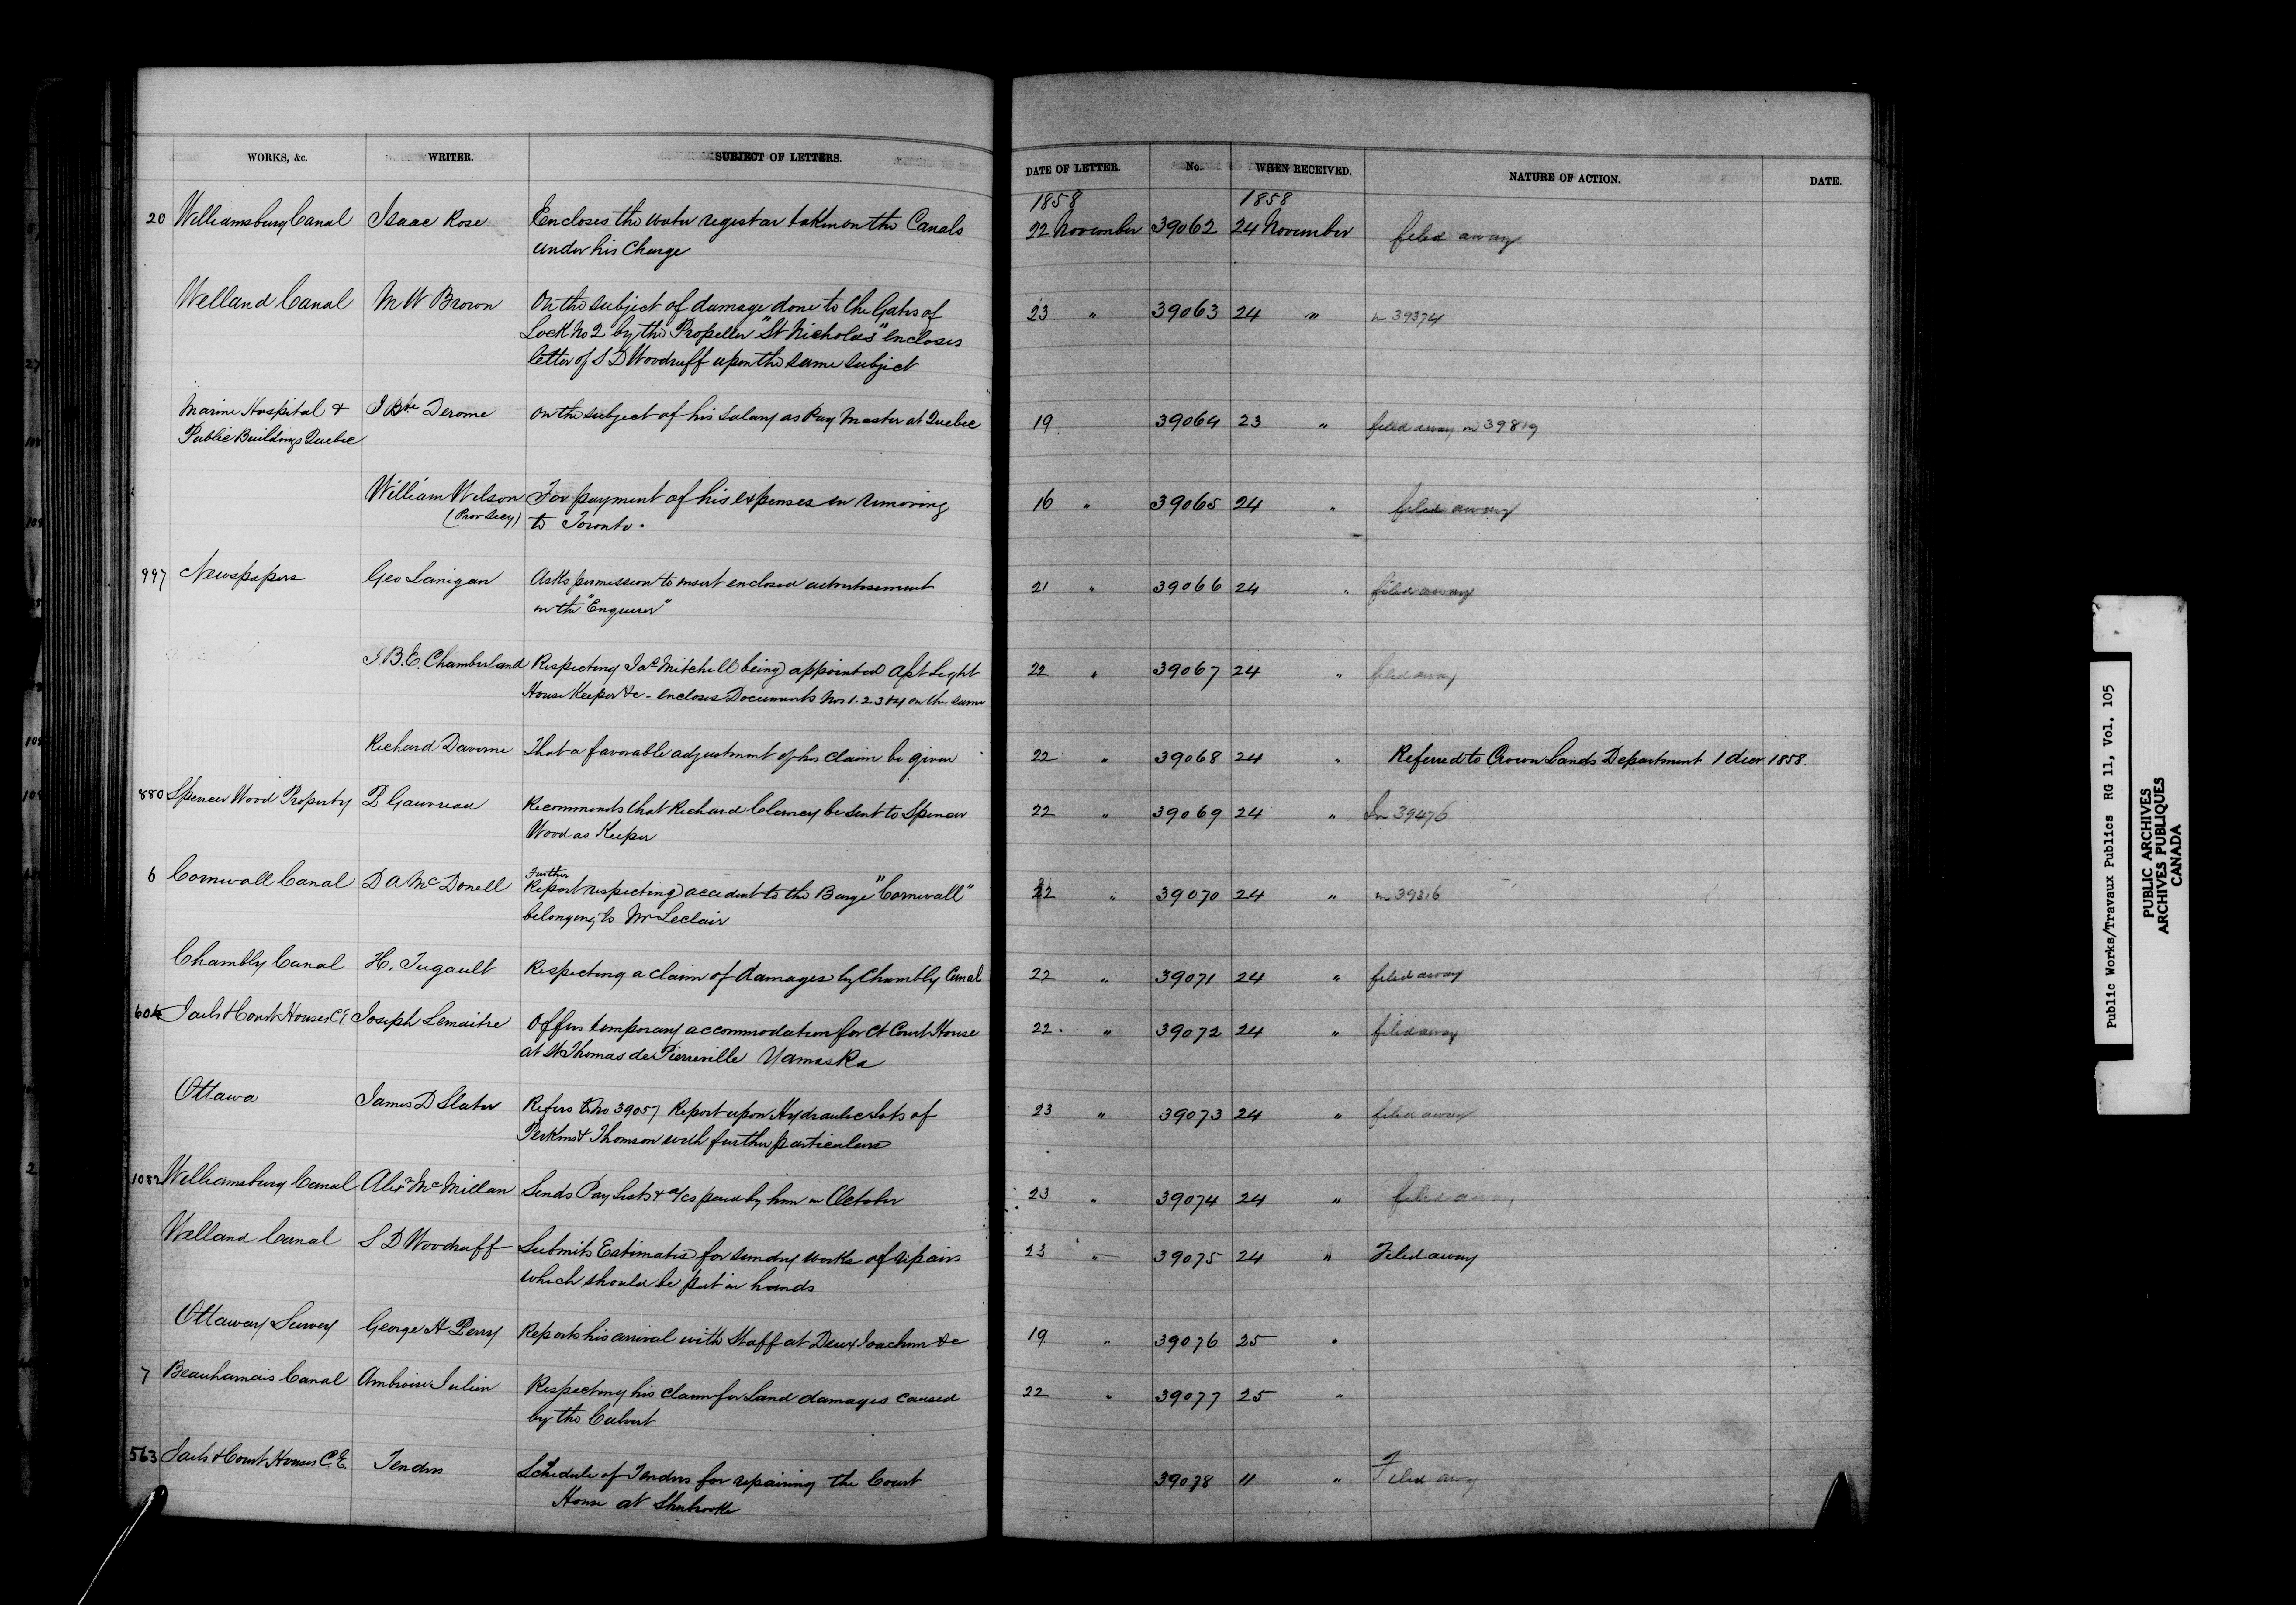 WORKS, &c. WRITER. SUBJECT OF LETTERS. DATE OF LETTER. No. WHEN RECEIVED. NATURE OF ACTION. DATE.
1858 1858
20 Williamsburg Canal Isaac Rose Encloses the water registar taken on the Canals 22 November 39062 24 November filed away
under his Charge
Welland Canal M W Brown On the subject of damage done to the Gates of 23 " 39063 24 " in 39374
Lock No 2 by the Propeller "St Nicholas" encloses
letter of S D Woodruff upon the same subject
Marine Hospital & J Bte Derome On the subject of his Salary as Pay Master at Quebec 19 39064 23 " filed away in 39819
Public Buildings Quebec
William Wilson For payment of his expenses in removing 16 " 39065 24 " filed away
(Prov Secy) to Toronto.
997 Newspapers Geo Lanigan Asks permission to insert enclosed advertisement 21 " 39066 24 " filed away
in the "Enquirer"
J.B.E. Chamberland Respecting Jas Mitchell being appointed Apt Light 22 " 39067 24 " filed away
House Keeper &c - encloses Documents Nos 1. 2. 3 & 4 on the same
Richard Daverne That a favorable adjustment of his claim be given 22 " 39068 24 " Referred to Crown Lands Department 1 decr 1858.
880 Spencer Wood Property P Gauvreau Recommends that Richard Clancy be sent to Spencer 22 " 39069 24 " In 39476
Wood as Keeper
6 Cornwall Canal D A McDonell Further Report respecting accident to the Barge "Cornwall" 22 " 39070 24 " in 39316
belonging to Mr Leclair
Chambly Canal H. Tugault Respecting a claim of damages by Chambly Canal 22 " 39071 24 " filed away
604 Jails & Court Houses C E Joseph Lemaitre Offers temporary accommodation for Ct Court House 22. " 39072 24 " filed away
at St Thomas de Pierreville Yamaska
Ottawa James D Slater Refers to No 39057 Report upon Hydraulic Lots of 23 " 39073 24 " filed away
Perkins & Thomson with further particulars
1082 Williamsburg Canal Alexr McMillan Sends Pay Lists & a/cs paid by him in October 23 " 39074 24 " filed away
Welland Canal S D Woodruff Submits Estimates for sundry works of repairs 23 " 39075 24 " Filed away
which should be put in hands
Ottaway Survey George H Perry Reports his arrival with Staff at Deux Joachim &c 19 " 39076 25 "
7 Beauharnais Canal Ambroise Julien Respecting his claim for Land damages caused 22 " 39077 25 "
by the Culvert
563 Jails & Court Houses C.E. Tenders Schedule of Tenders for repairing the Court 39078 " " Filed away
House at Sherbrooke
Public Works/Travaux Publics RG 11, Vol. 105
PUBLIC ARCHIVES
ARCHIVES PUBLIQUES
CANADA